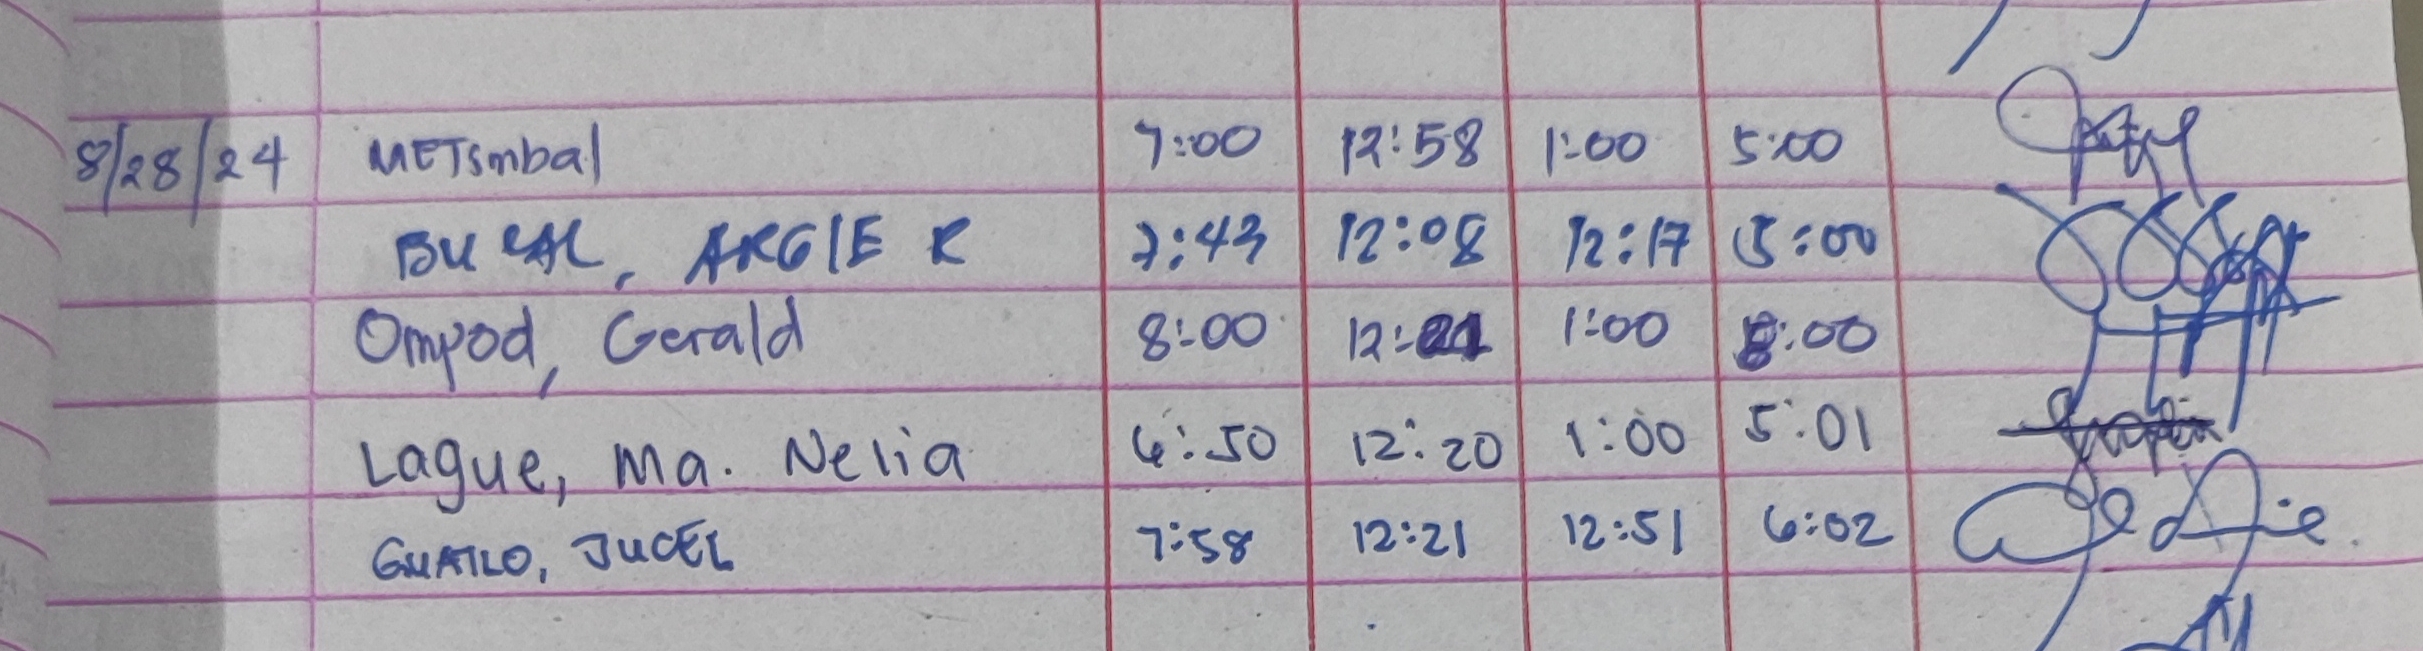 8/28/24 METSmbal 7:00 12:58 1:00 5:00
BUCAL, ARGIE R 7:43 12:08 12:17 5:00
Ompod, Gerald 8:00 12:21 1:00 :00
Lague, Ma. Nelia 6:50 12:20 1:00 5:01
GUATLO, JUCEL 7:58 12:21 12:51 6:02